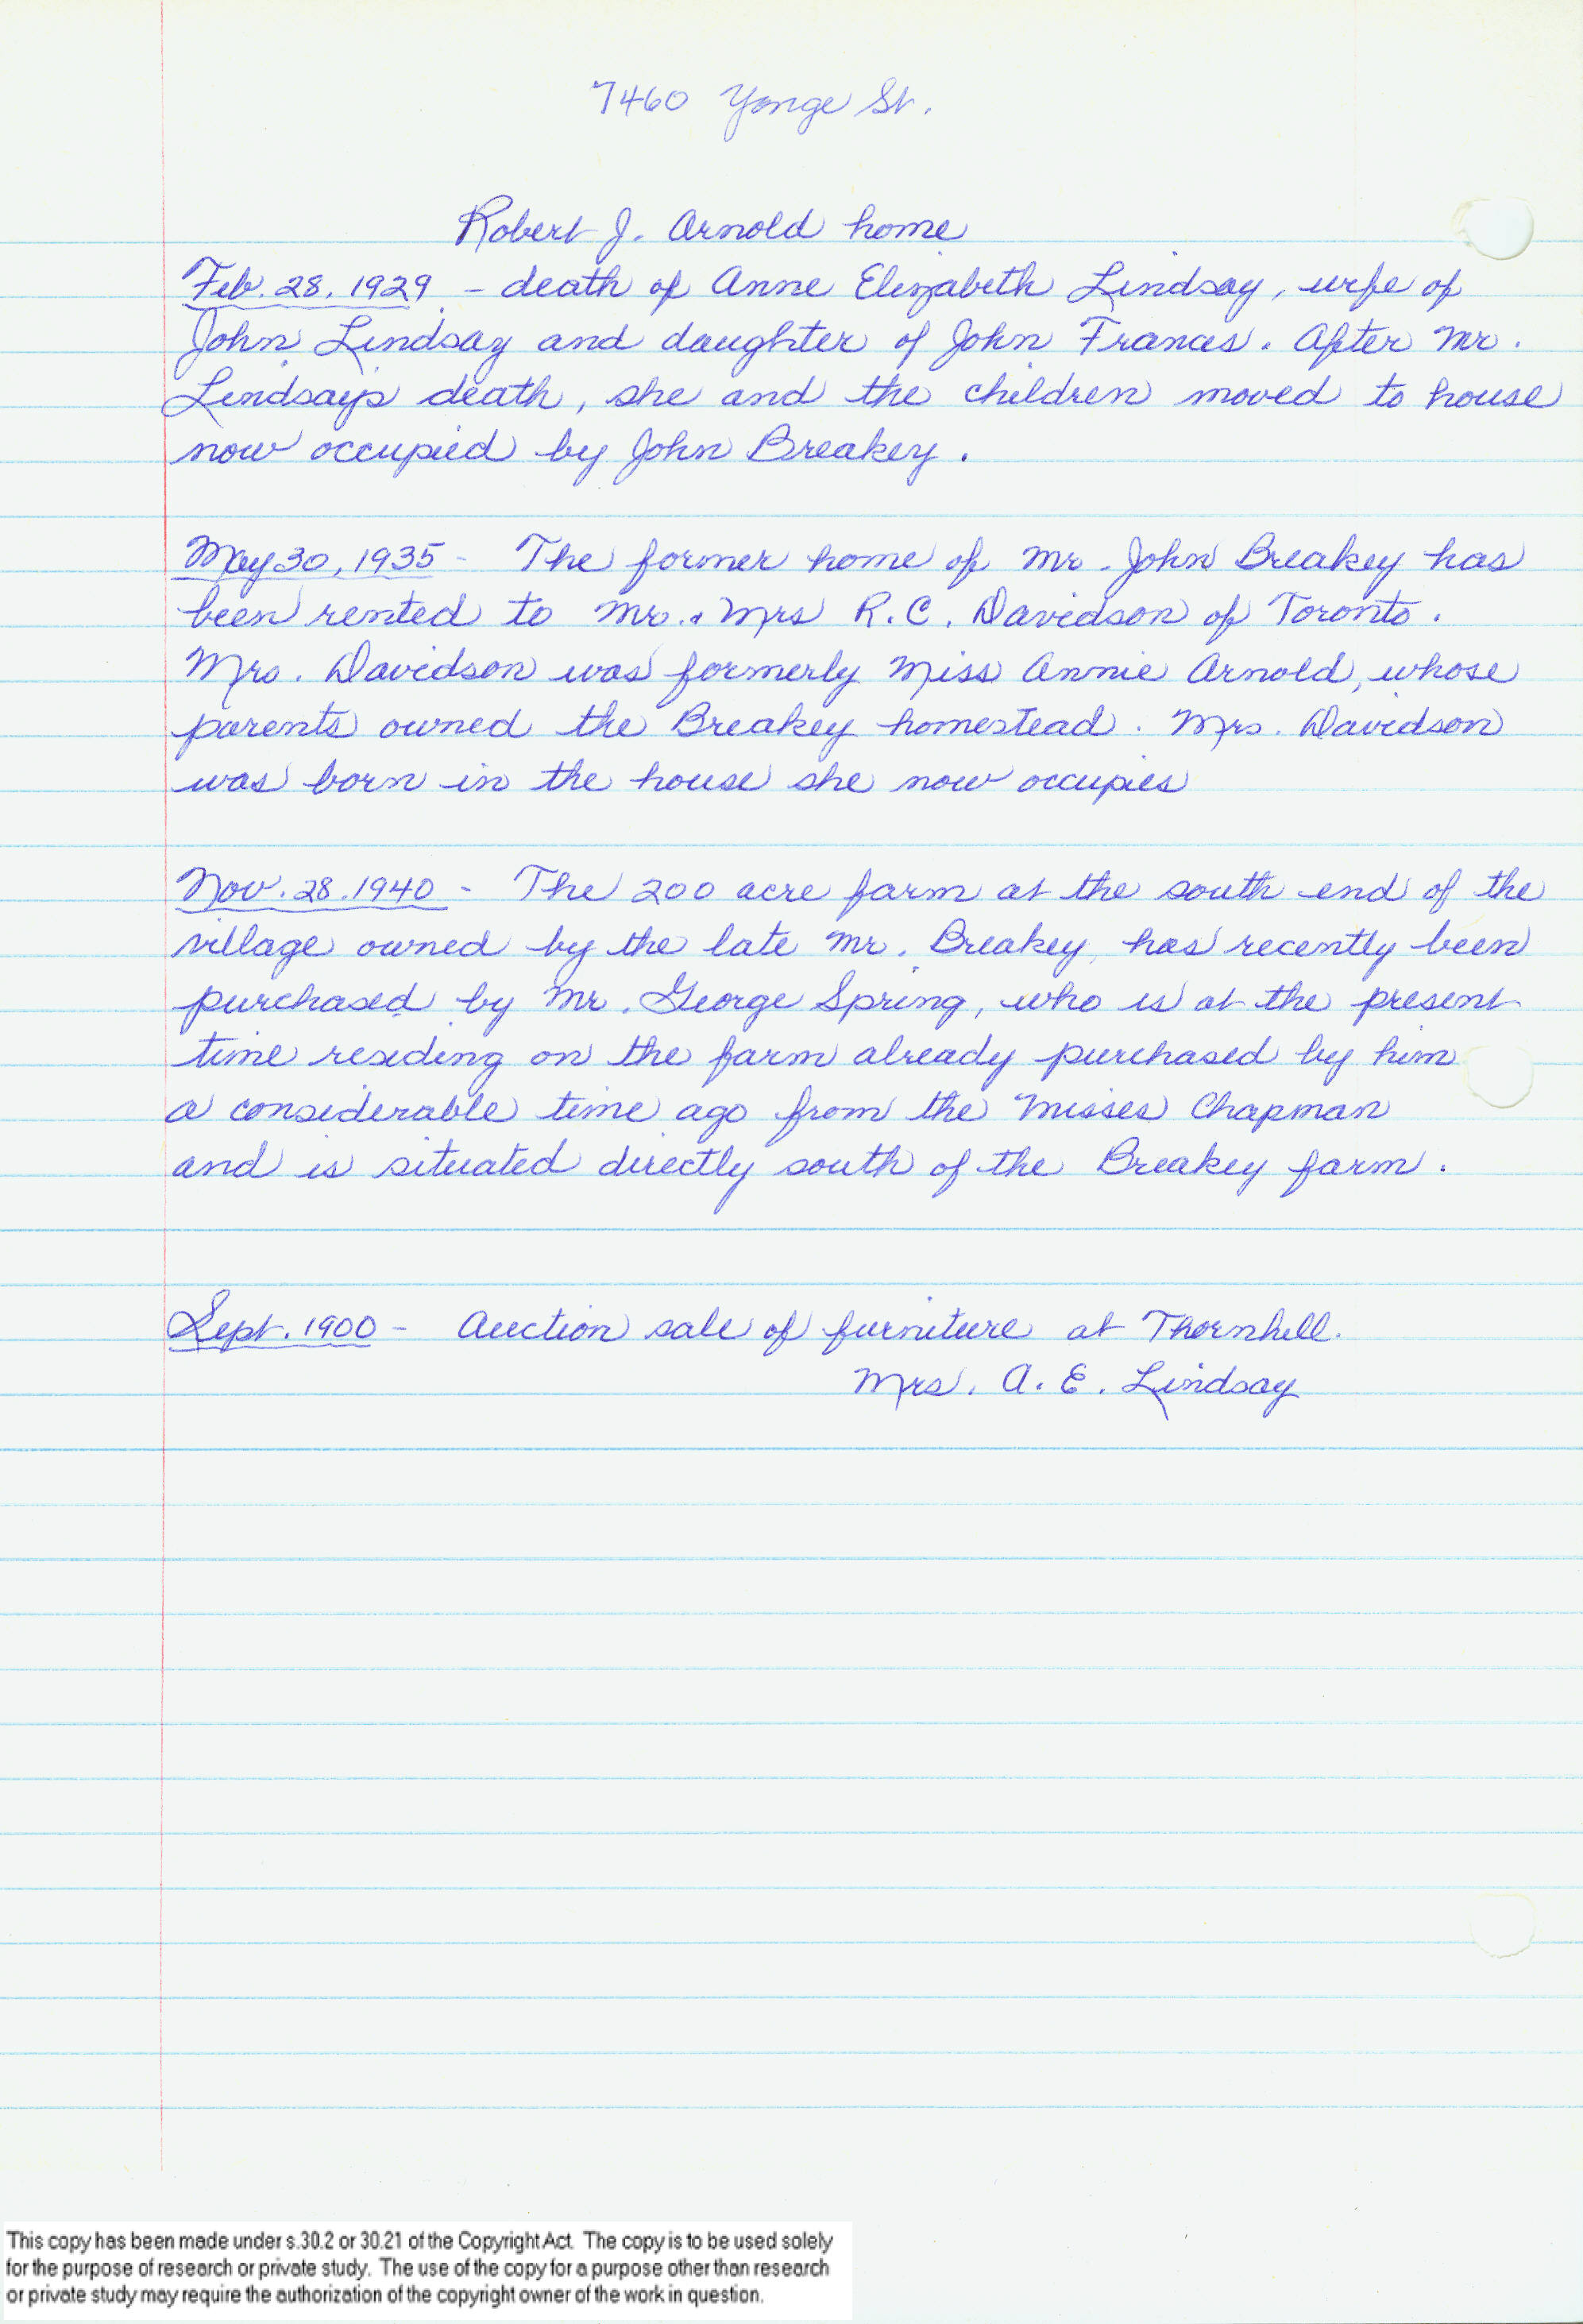 7460 Yonge St.
Robert J. Arnold home
Feb. 28, 1929 - death of Anne Elizabeth Lindsay, wife of
John Lindsay and daughter of John Frances. After Mr.
Lindsay's death, she and the children moved to house
now occupied by John Breakey.
May 30, 1935 - The former home of Mr. John Breakey has
been rented to Mr. & Mrs R.C. Davidson of Toronto.
Mrs. Davidson was formerly Miss Annie Arnold, whose
parents owned the Breakey homestead. Mrs. Davidson
was born in the house she now occupies
Nov. 28. 1940 - The 200 acre farm at the south end of the
village owned by the late Mr. Breakey, has recently been
purchased by Mr. George Spring, who is at the present
time residing on the farm already purchased by him
a considerable time ago from the Misses Chapman
and is situated directly south of the Breakey farm.
Sept. 1900 - Auction sale of furniture at Thornhill.
Mrs. A. E. Lindsay
This copy has been made under s.30.2 or 30.21 of the Copyright Act. The copy is to be used solely
for the purpose of research or private study. The use of the copy for a purpose other than research
or private study may require the authorization of the copyright owner of the work in question.